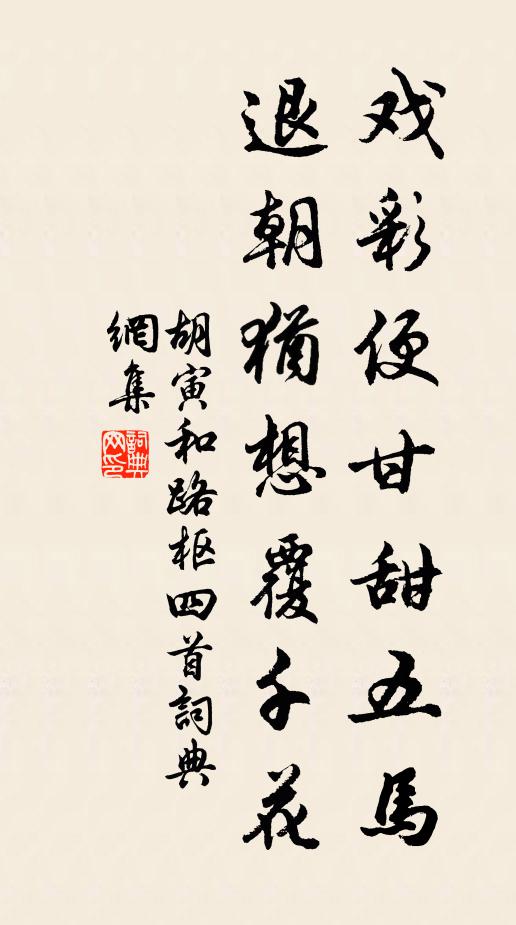 戏彩便甘甜五馬
退朝猶想覆千花
胡寅和路枢四首詞典
網集
詞典
网印